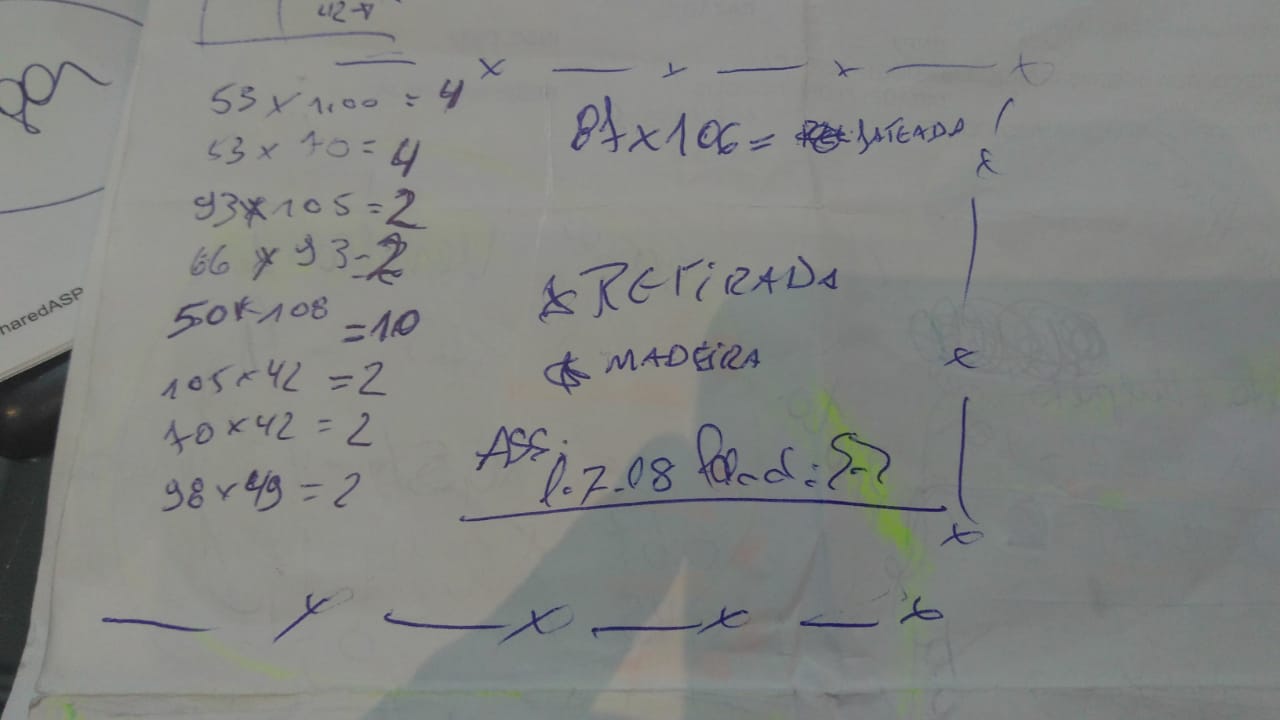 42
53 x 1,00 = 4
53 x 70 = 4
93 x 105 = 2
66 x 93 = 2
50 x 108 = 10
105 x 42 = 2
70 x 42 = 2
98 x 49 = 2
87 x 106 = JATEADA
RETIRADA
MADEIRA
ASS:
haredASP